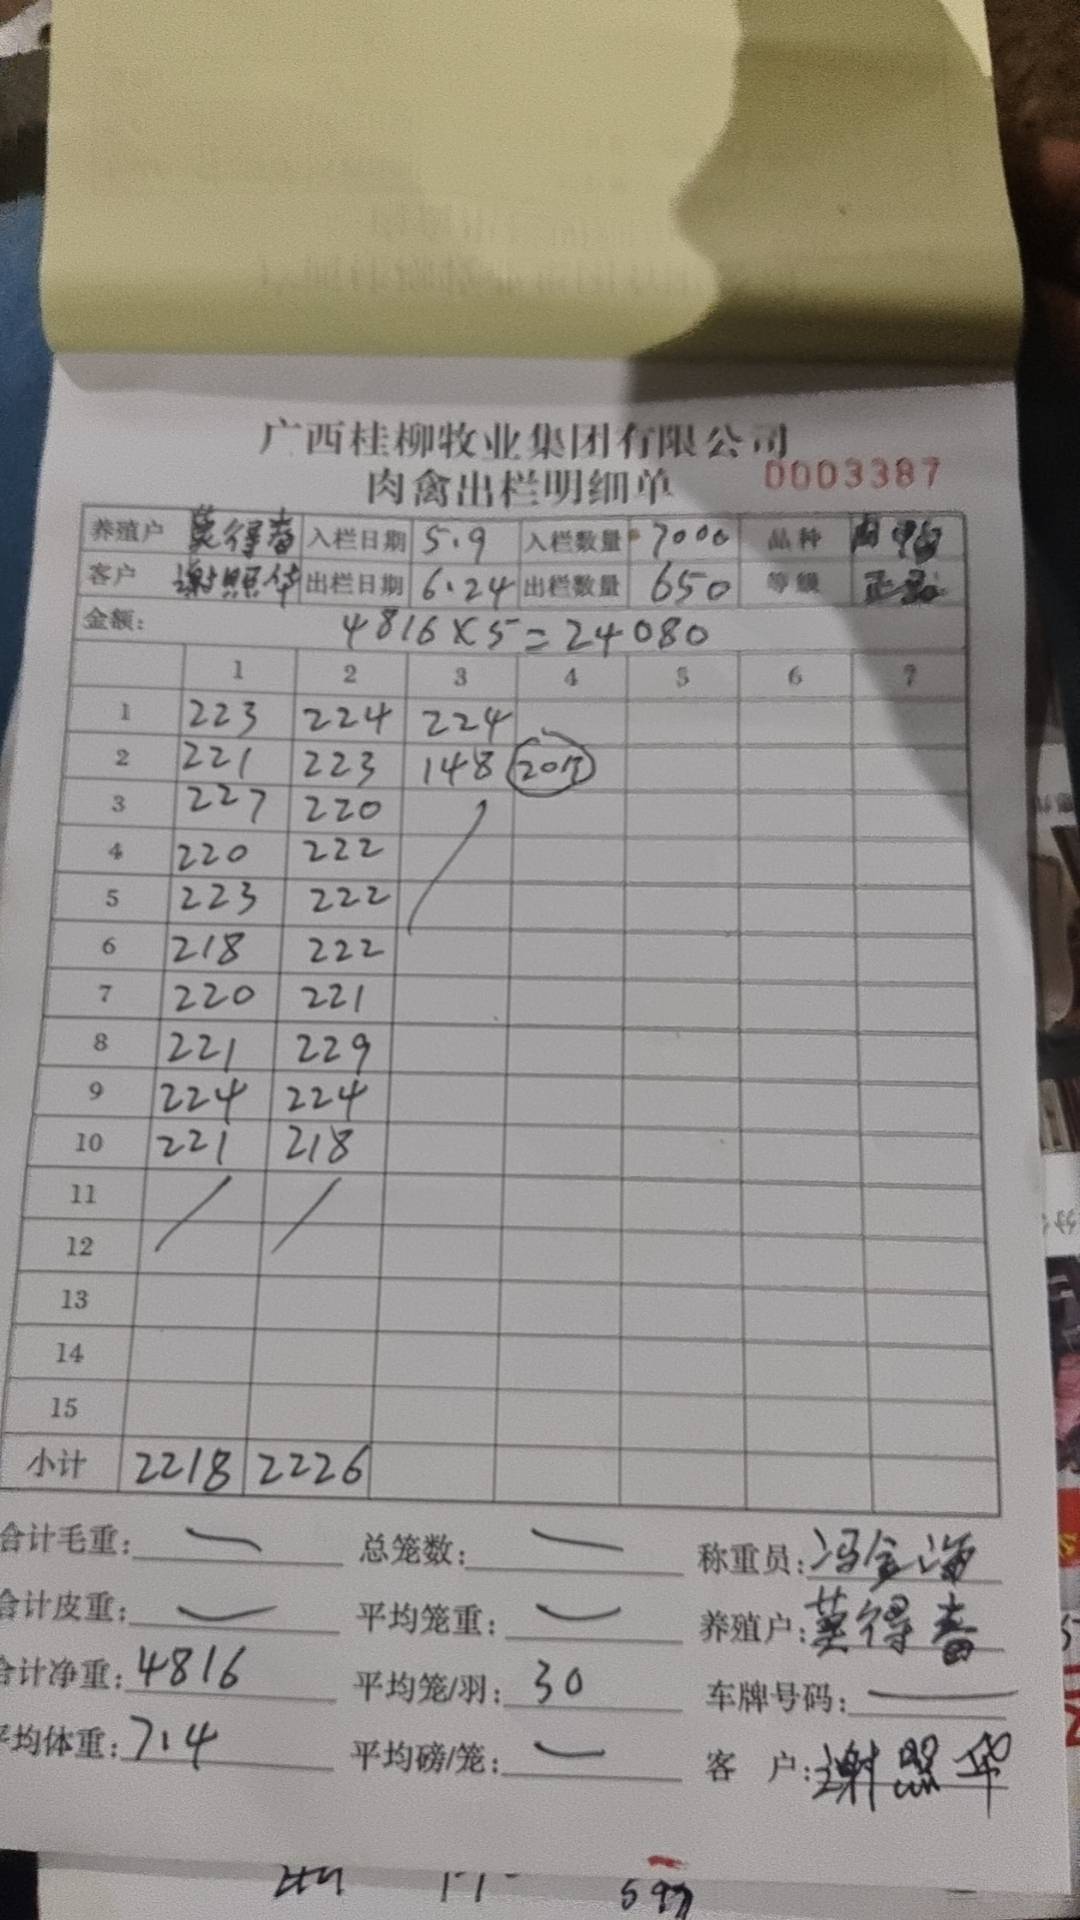 广西桂柳牧业集团有限公司
肉禽出栏明细单 0003387
养殖户 莫得春 入栏日期 5.9 入栏数量 7000 品种 肉鸭
客户 谢照华 出栏日期 6.24 出栏数量 650 等级 正品
金额: 4816×5=24080
1 2 3 4 5 6 7
1 223 224 224
2 221 223 148 20只
3 227 220
4 220 222
5 223 222
6 218 222
7 220 221
8 221 229
9 224 224
10 221 218
11
12
13
14
15
小计 2218 2226
合计毛重: 总笼数: 称重员:冯金海
合计皮重: 平均笼重: 养殖户:莫得春
合计净重: 4816 平均笼/羽: 30 车牌号码:
平均体重: 7.4 平均磅/笼: 客 户:谢照华